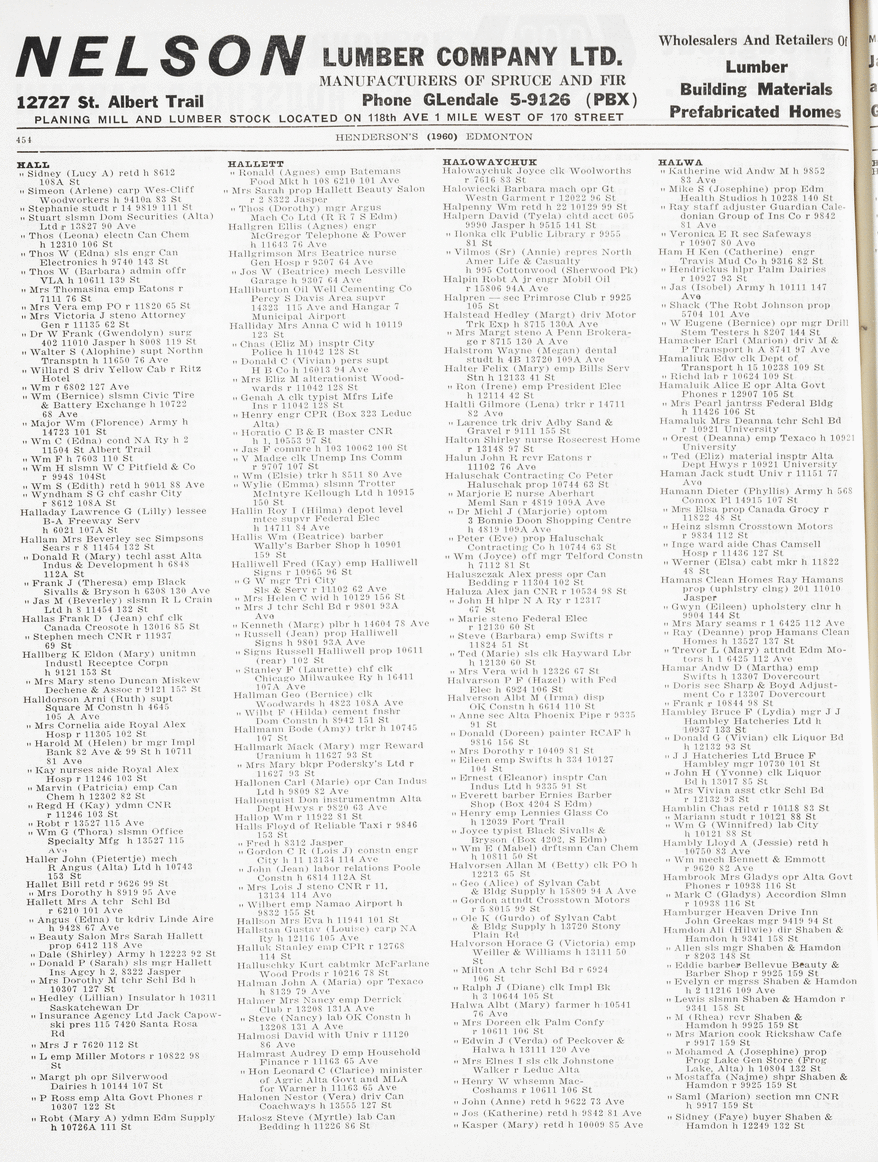 NELSON LUMBER COMPANY LTD.
MANUFACTURERS OF SPRUCE AND FIR
12727 St. Albert Trail Phone GLendale 5-9126 (PBX)
PLANING MILL AND LUMBER STOCK LOCATED ON 118th AVE 1 MILE WEST OF 170 STREET
Wholesalers And Retailers Of
Lumber
Building Materials
Prefabricated Homes
454 HENDERSON'S (1960) EDMONTON
HALL
" Sidney (Lucy A) retd h 8612
108A St
" Simeon (Arlene) carp Wes-Cliff
Woodworkers h 9410a 83 St
" Stephanie studt r 14 9819 111 St
" Stuart slsmn Dom Securities (Alta)
Ltd r 13827 90 Ave
" Thos (Leona) electn Can Chem
h 12310 106 St
" Thos W (Edna) sls engr Can
Electronics h 9740 143 St
" Thos W (Barbara) admin offr
VLA h 10611 139 St
" Mrs Thomasina emp Eatons r
7111 76 St
" Mrs Vera emp PO r 11820 65 St
" Mrs Victoria J steno Attorney
Gen r 11135 62 St
" Dr W Frank (Gwendolyn) surg
402 11010 Jasper h 8008 119 St
" Walter S (Alophine) supt Northn
Transptn h 11650 76 Ave
" Willard S driv Yellow Cab r Ritz
Hotel
" Wm r 6802 127 Ave
" Wm (Bernice) slsmn Civic Tire
& Battery Exchange h 10722
68 Ave
" Major Wm (Florence) Army h
14723 101 St
" Wm C (Edna) cond NA Ry h 2
11504 St Albert Trail
" Wm F h 7603 110 St
" Wm H slsmn W C Pitfield & Co
r 9948 104St
" Wm S (Edith) retd h 9011 88 Ave
" Wyndham S G chf cashr City
r 8612 108A St
Halladay Lawrence G (Lilly) lessee
B-A Freeway Serv
h 6021 107A St
Hallam Mrs Beverley sec Simpsons
Sears r 8 11454 132 St
" Donald R (Mary) techl asst Alta
Indus & Development h 6848
112A St
" Frank J (Theresa) emp Black
Sivalls & Bryson h 6308 130 Ave
" Jas M (Beverley) slsmn R L Crain
Ltd h 8 11454 132 St
Hallas Frank D (Jean) chf clk
Canada Creosote h 13016 85 St
" Stephen mech CNR r 11937
69 St
Hallberg K Eldon (Mary) unitmn
Industl Receptce Corpn
h 9121 153 St
" Mrs Mary steno Duncan Miskew
Dechene & Assoc r 9121 153 St
Halldorson Arni (Ruth) supt
Square M Constn h 4645
105 A Ave
" Mrs Cornelia aide Royal Alex
Hosp r 11305 102 St
" Harold M (Helen) br mgr Impl
Bank 82 Ave & 99 St h 10711
81 Ave
" Kay nurses aide Royal Alex
Hosp r 11246 103 St
" Marvin (Patricia) emp Can
Chem h 12302 82 St
" Regd H (Kay) ydmn CNR
r 11246 103 St
" Robt r 13527 115 Ave
" Wm G (Thora) slsmn Office
Specialty Mfg h 13527 115
Ave
Haller John (Pietertje) mech
R Angus (Alta) Ltd h 10743
153 St
Hallet Bill retd r 9626 99 St
" Mrs Dorothy h 8919 95 Ave
Hallett Mrs A tchr Schl Bd
r 6210 101 Ave
" Angus (Edna) tr kdriv Linde Aire
h 9428 67 Ave
" Beauty Salon Mrs Sarah Hallett
prop 6412 118 Ave
" Dale (Shirley) Army h 12223 92 St
" Donald P (Sarah) sls mgr Hallett
Ins Agcy h 2, 8322 Jasper
" Mrs Dorothy M tchr Schl Bd h
10307 127 St
" Hedley (Lillian) Insulator h 10311
Saskatchewan Dr
" Insurance Agency Ltd Jack Capow-
ski pres 115 7420 Santa Rosa
Rd
" Mrs J r 7620 112 St
" L emp Miller Motors r 10822 98
St
" Margt ph opr Silverwood
Dairies h 10144 107 St
" P Ross emp Alta Govt Phones r
10307 122 St
" Robt (Mary A) ydmn Edm Supply
h 10726A 111 St
HALLETT
" Ronald (Agnes) emp Batemans
Food Mkt h 108 6210 101 Ave
" Mrs Sarah prop Hallett Beauty Salon
r 2 8322 Jasper
" Thos (Dorothy) mgr Argus
Mach Co Ltd (R R 7 S Edm)
Hallgren Ellis (Agnes) engr
McGregor Telephone & Power
h 11643 76 Ave
Hallgrimson Mrs Beatrice nurse
Gen Hosp r 9307 64 Ave
" Jos W (Beatrice) mech Lesville
Garage h 9307 64 Ave
Halliburton Oil Well Cementing Co
Percy S Davis Area supvr
14323 115 Ave and Hangar 7
Municipal Airport
Halliday Mrs Anna C wid h 10119
123 St
" Chas (Eliz M) insptr City
Police h 11042 128 St
" Donald C (Vivian) pers supt
H B Co h 16013 94 Ave
" Mrs Eliz M alterationist Wood-
wards r 11042 128 St
" Genah A clk typist Mfrs Life
Ins r 11042 128 St
" Henry engr CPR (Box 323 Leduc
Alta)
" Horatio C B & B master CNR
h 1, 10553 97 St
" Jas F comnre h 103 10062 100 St
" V Madge clk Unemp Ins Comm
r 9707 107 St
" Wm (Elsie) trkr h 8511 80 Ave
" Wylie (Emma) slsmn Trotter
McIntyre Kellough Ltd h 10915
150 St
Hallin Roy I (Hilma) depot level
mtce supvr Federal Elec
h 14711 84 Ave
Hallis Wm (Beatrice) barber
Wally's Barber Shop h 10901
159 St
Halliwell Fred (Kay) emp Halliwell
Signs r 10965 96 St
" G W mgr Tri City
Sls & Serv r 11102 62 Ave
" Mrs Helen C wid h 10129 156 St
" Mrs J tchr Schl Bd r 9801 93A
Ave
" Kenneth (Marg) plbr h 14604 78 Ave
" Russell (Jean) prop Halliwell
Signs h 9801 93A Ave
" Signs Russell Halliwell prop 10611
(rear) 102 St
" Stanley F (Laurette) chf clk
Chicago Milwaukee Ry h 16411
107A Ave
Hallman Geo (Bernice) clk
Woodwards h 4823 108A Ave
" Wilht F (Hilda) cement fnshr
Dom Constn h 8942 151 St
Hallmann Bode (Amy) trkr h 10745
107 St
Hallmark Mack (Mary) mgr Reward
Uranium h 11627 93 St
" Mrs Mary bkpr Podersky's Ltd r
11627 93 St
Hallonen Carl (Marie) opr Can Indus
Ltd h 9809 82 Ave
Hallonquist Don instrumentmn Alta
Dept Hwys r 9820 63 Ave
Hallop Wm r 11922 81 St
Halls Floyd of Reliable Taxi r 9846
153 St
" Fred h 8312 Jasper
" Gordon C R (Lois J) constn engr
City h 11 13134 114 Ave
" John (Jean) labor relations Poole
Constn h 6814 112A St
" Mrs Lois J steno CNR r 11,
13134 114 Ave
" Wilbert emp Namao Airport h
9832 155 St
Hallson Mrs Eva h 11941 101 St
Hallstan Gustav (Louise) carp NA
Ry h 12116 105 Ave
Halluk Stanley emp CPR r 12768
114 St
Halluschky Kurt cabtmkr McFarlane
Wood Prods r 10216 78 St
Halman John A (Maria) opr Texaco
h 8139 79 Ave
Halmer Mrs Nancy emp Derrick
Club r 13208 131A Ave
" Steve (Nancy) lab OK Constn h
13208 131 A Ave
Halmosi David with Univ r 11120
86 Ave
Halmrast Audrey D emp Household
Finance r 11163 65 Ave
" Hon Leonard C (Clarice) minister
of Agric Alta Govt and MLA
for Warner h 11163 65 Ave
Halonen Nestor (Vera) driv Can
Coachways h 13555 127 St
Halosz Steve (Myrtle) lab Can
Bedding h 11226 86 St
HALOWAYCHUK
Halowaychuk Joyce clk Woolworths
r 7616 83 St
Halowiecki Barbara mach opr Gt
Westn Garment r 12022 96 St
Halpenny Wm retd h 22 10129 99 St
Halpern David (Tyela) chtd acct 605
9990 Jasper h 9515 141 St
" Ilonka clk Public Library r 9955
81 St
" Vilmos (Sr) (Annie) repres North
Amer Life & Casualty
h 995 Cottonwood (Sherwood Pk)
Halpin Robt A jr engr Mobil Oil
r 15806 94A Ave
Halpren — sec Primrose Club r 9925
105 St
Halstead Hedley (Margt) driv Motor
Trk Exp h 8715 130A Ave
" Mrs Margt steno A Penn Brokera-
ge r 8715 130 A Ave
Halstrom Wayne (Megan) dental
studt h 4B 13720 109A Ave
Halter Felix (Mary) emp Bills Serv
Stn h 12133 41 St
" Ron (Irene) emp President Elec
h 12114 42 St
Haltli Gilmore (Lena) trkr r 14711
82 Ave
" Larence trk driv Adby Sand &
Gravel r 9111 155 St
Halton Shirley nurse Rosecrest Home
r 13148 97 St
Halun John R rcvr Eatons r
11102 76 Ave
Haluschak Contracting Co Peter
Haluschak prop 10744 63 St
" Marjorie E nurse Aberhart
Meml San r 4819 109A Ave
" Dr Michl J (Marjorie) optom
3 Bonnie Doon Shopping Centre
h 4819 109A Ave
" Peter (Eve) prop Haluschak
Contracting Co h 10744 63 St
" Wm (Joyce) off mgr Telford Constn
h 7112 81 St
Haluszezak Alex press opr Can
Bedding r 11304 102 St
Haluza Alex jan CNR r 10534 98 St
" John H hlpr N A Ry r 12317
67 St
" Marie steno Federal Elec
r 12130 60 St
" Steve (Barbara) emp Swifts r
11824 51 St
" Ted (Marie) sls clk Hayward Lbr
h 12130 60 St
" Mrs Vera wid h 12326 67 St
Halvarson P F (Hazel) with Fed
Elec h 6924 106 St
Halverson Albt M (Irma) disp
OK Constn h 6614 110 St
" Anne sec Alta Phoenix Pipe r 9335
91 St
" Donald (Doreen) painter RCAF h
9816 156 St
" Mrs Dorothy r 10409 81 St
" Eileen emp Swifts h 334 10127
104 St
" Ernest (Eleanor) insptr Can
Indus Ltd h 9335 91 St
" Everett barber Ernies Barber
Shop (Box 4204 S Edm)
" Henry emp Lennies Glass Co
h 12039 Fort Trail
" Joyce typist Black Sivalls &
Bryson (Box 4202, S Edm)
" Wm E (Mabel) drftsmn Can Chem
h 10811 50 St
Halvorsen Allan M (Betty) clk PO h
12213 65 St
" Geo (Alice) of Sylvan Cabt
& Bldg Supply h 15809 94 A Ave
" Gordon attndt Crosstown Motors
r 5 8015 99 St
" Ole K (Gurdo) of Sylvan Cabt
& Bldg Supply h 13720 Stony
Plain Rd
Halvorson Horace G (Victoria) emp
Weiller & Williams h 13111 50
St
" Milton A tchr Schl Bd r 6924
106 St
" Ralph J (Diane) clk Impl Bk
h 3 10644 105 St
Halwa Albt (Mary) farmer h 10541
76 Ave
" Mrs Doreen clk Palm Confy
r 10611 106 St
" Edwin J (Verda) of Peckover &
Halwa h 13111 120 Ave
" Mrs Elnes I sls clk Johnstone
Walker r Leduc Alta
" Henry W whsemn Mac-
Coshams r 10611 106 St
" John (Anne) retd h 9622 73 Ave
" Jos (Katherine) retd h 9842 81 Ave
" Kasper (Mary) retd h 10009 85 Ave
HALWA
" Katherine wid Andw M h 9852
83 Ave
" Mike S (Josephine) prop Edm
Health Studios h 10238 140 St
" Ray staff adjuster Guardian Cale-
donian Group of Ins Co r 9842
81 Ave
" Veronica E R sec Safeways
r 10907 80 Ave
Ham H Ken (Catherine) engr
Travis Mud Co h 9316 82 St
" Hendrickus hlpr Palm Dairies
r 10927 93 St
" Jas (Isobel) Army h 10111 147
Ave
" Shack (The Robt Johnson prop
5704 101 Ave
" W Eugene (Bernice) opr mgr Drill
Stem Testers h 8207 144 St
Hamacher Earl (Marion) driv M &
P Transport h A 8741 97 Ave
Hamaluk Edw clk Dept of
Transport h 15 10238 109 St
" Richd lab r 10624 109 St
Hamaluik Alice E opr Alta Govt
Phones r 12907 105 St
" Mrs Pearl jantrss Federal Bldg
h 11426 106 St
Hamaluk Mrs Deanna tchr Schl Bd
r 10921 University
" Orest (Deanna) emp Texaco h 10921
University
" Ted (Eliz) material insptr Alta
Dept Hwys r 10921 University
Haman Jack studt Univ r 11151 77
Ave
Hamann Dieter (Phyllis) Army h 568
Comox Pl 14915 107 St
" Mrs Elsa prop Canada Grocy r
11822 48 St
" Heinz slsmn Crosstown Motors
r 9834 112 St
" Inge ward aide Chas Camsell
Hosp r 11436 127 St
" Werner (Elsa) cabt mkr h 11822
48 St
Hamans Clean Homes Ray Hamans
prop (uphlstry clng) 201 11010
Jasper
" Gwyn (Eileen) upholstery clnr h
9904 144 St
" Mrs Mary seams r 1 6425 112 Ave
" Ray (Deanne) prop Hamans Clean
Homes h 13527 137 St
" Trevor L (Mary) attndt Edm Mo-
tors h 1 6425 112 Ave
Hamar Andw D (Martha) emp
Swifts h 13307 Dovercourt
" Doris sec Sharp & Boyd Adjust-
ment Co r 13307 Dovercourt
" Frank r 10844 98 St
Hambley Bruce F (Lydia) mgr J J
Hambley Hatcheries Ltd h
10937 133 St
" Donald G (Vivian) clk Liquor Bd
h 12132 93 St
" J J Hatcheries Ltd Bruce F
Hambley mgr 10730 101 St
" John H (Yvonne) clk Liquor
Bd h 13017 85 St
" Mrs Vivian asst ctkr Schl Bd
r 12132 93 St
Hamblin Chas retd r 10118 83 St
" Mariann studt r 10121 88 St
" Wm G (Winnifred) lab City
h 10121 88 St
Hambly Lloyd A (Jessie) retd h
10750 83 Ave
" Wm mech Bennett & Emmott
r 9620 82 Ave
Hambrook Mrs Gladys opr Alta Govt
Phones r 10938 116 St
" Mark C (Gladys) Accordion Slmn
r 10938 116 St
Hamburger Heaven Drive Inn
John Greekas mgr 9419 94 St
Hamdon Ali (Hilwie) dir Shaben &
Hamdon h 9341 158 St
" Allen sls mgr Shaben & Hamdon
r 8203 148 St
" Eddie barber Bellevue Beauty &
Barber Shop r 9925 159 St
" Evelyn cr mgrss Shaben & Hamdon
h 2 11216 109 Ave
" Lewis slsmn Shaben & Hamdon r
9341 158 St
" M (Rhea) rcvr Shaben &
Hamdon h 9925 159 St
" Mrs Marion cook Rickshaw Cafe
r 9917 159 St
" Mohamed A (Josephine) prop
Frog Lake Gen Store (Frog
Lake, Alta) h 10804 132 St
" Mostaffa (Najme) shpr Shaben &
Hamdon r 9925 159 St
" Saml (Marion) section mn CNR
h 9917 159 St
" Sidney (Faye) buyer Shaben &
Hamdon h 12249 132 St